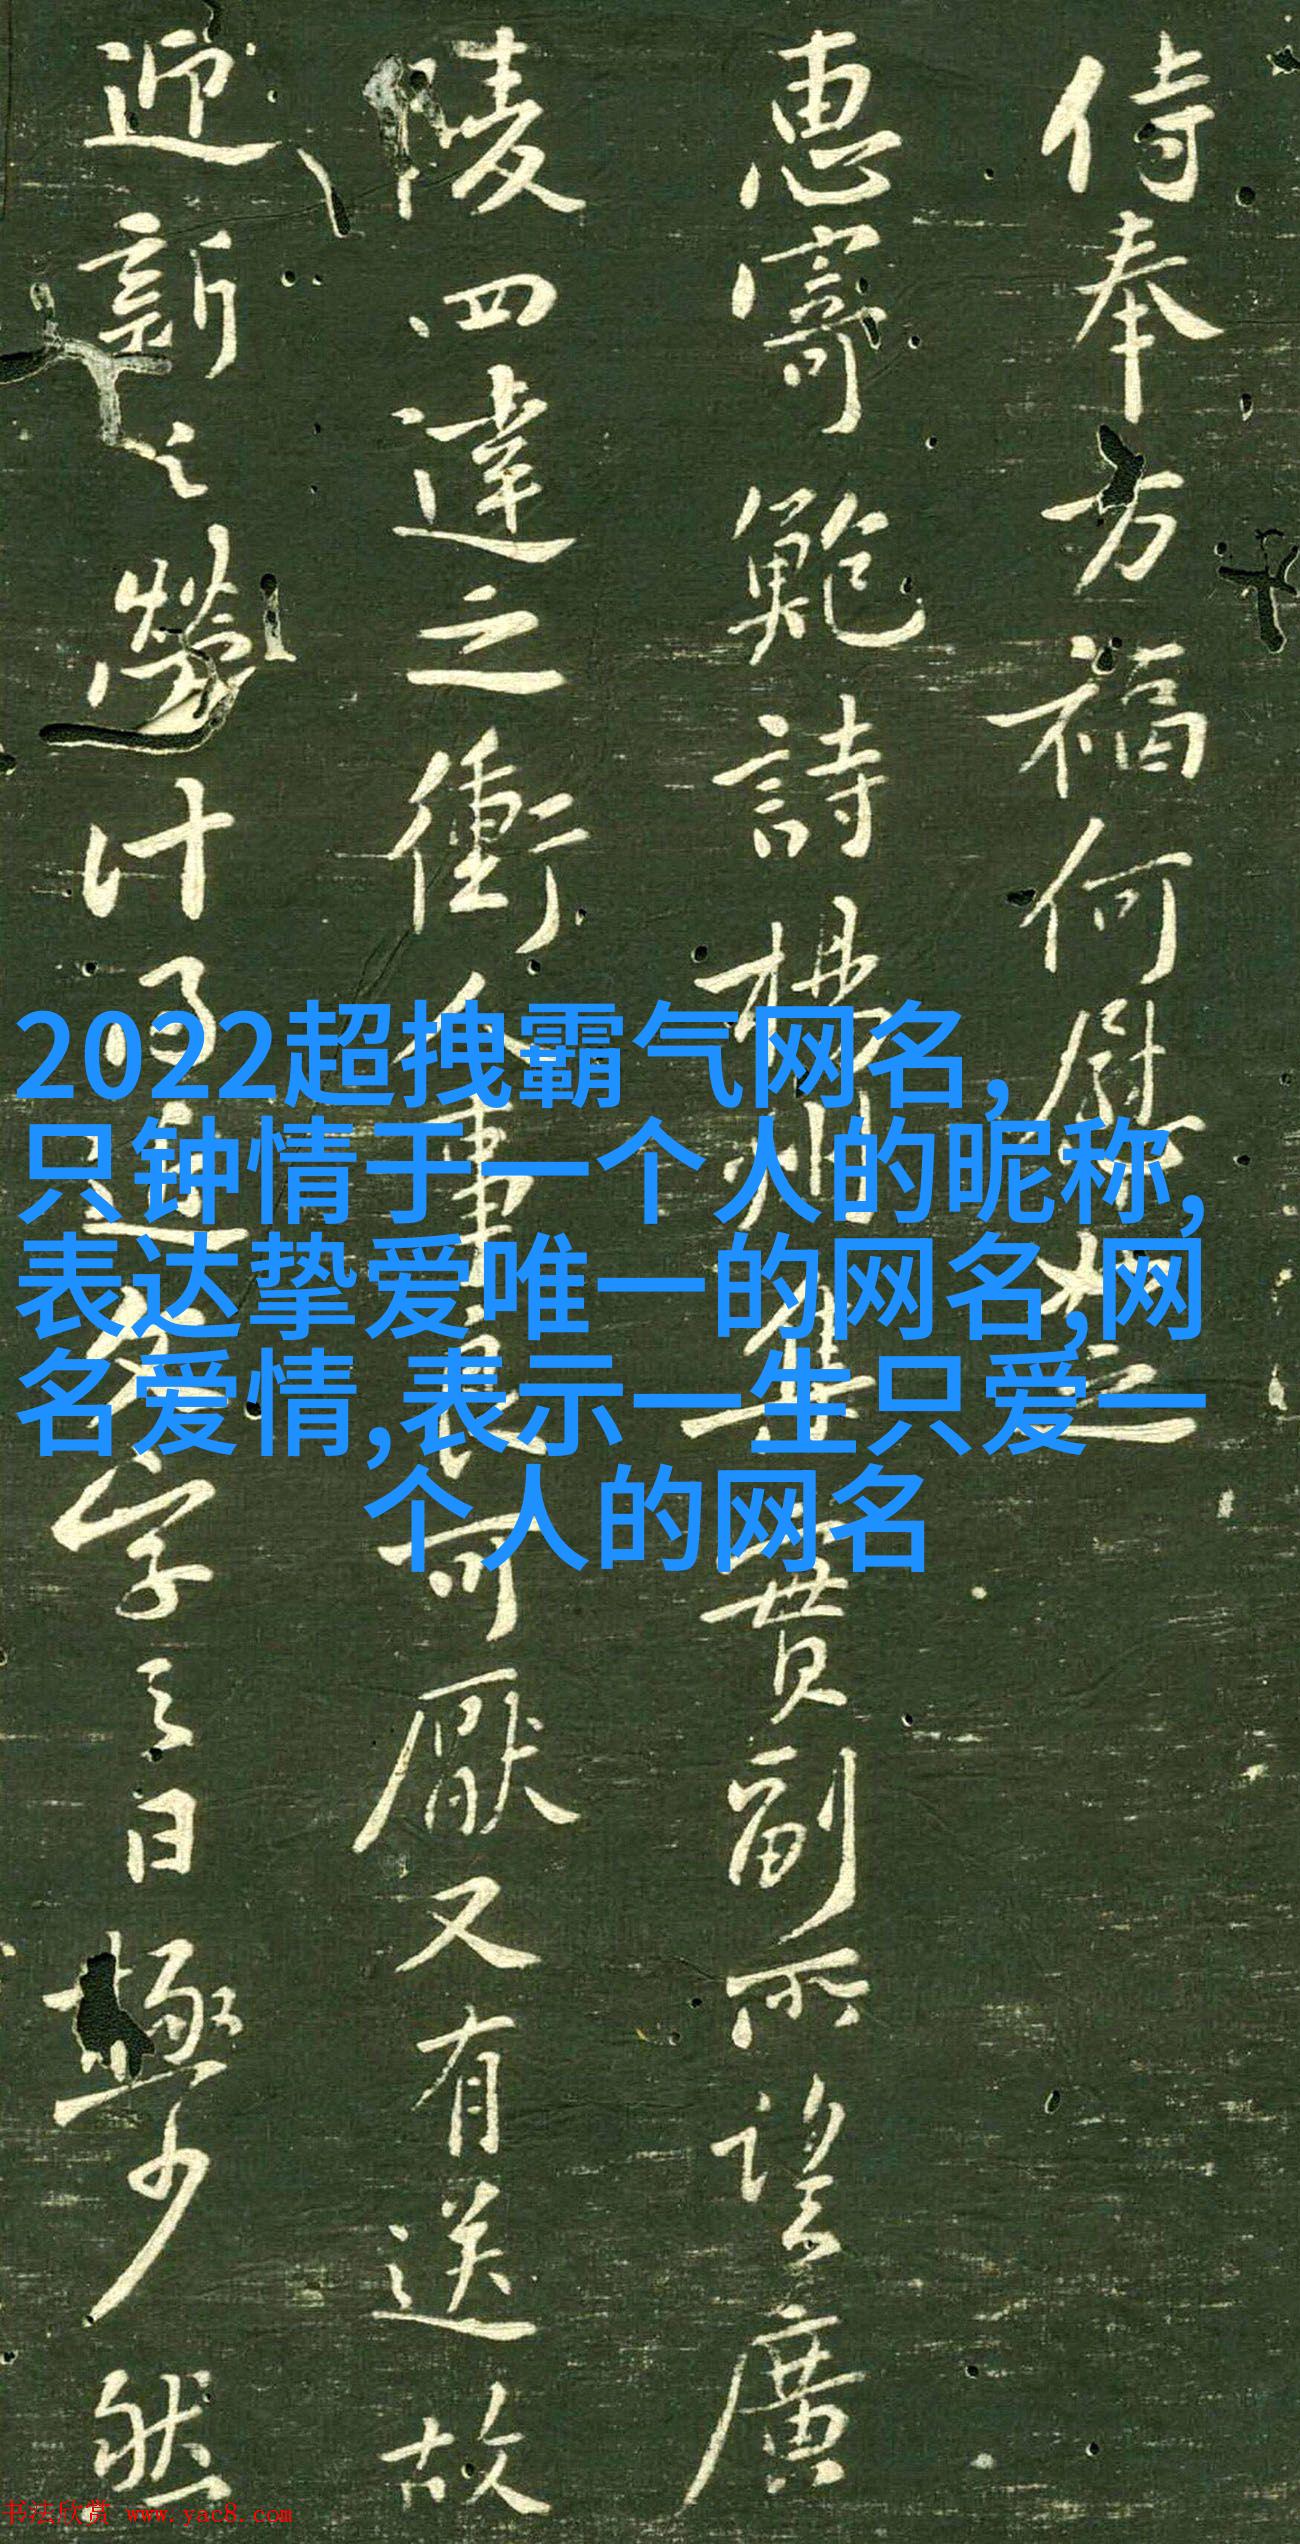 侍奉万福何慰如之
惠寄鲍詩楊州集賁副所望廣
陵四達之衝人事良可厭又有送故
迎新之勞計
字言日極少然
2022超拽霸气网名,
只钟情于一个人的昵称,
表达挚爱唯一的网名,网
名爱情,表示一生只爱一
个人的网名
书法欣赏 www.yac8.com